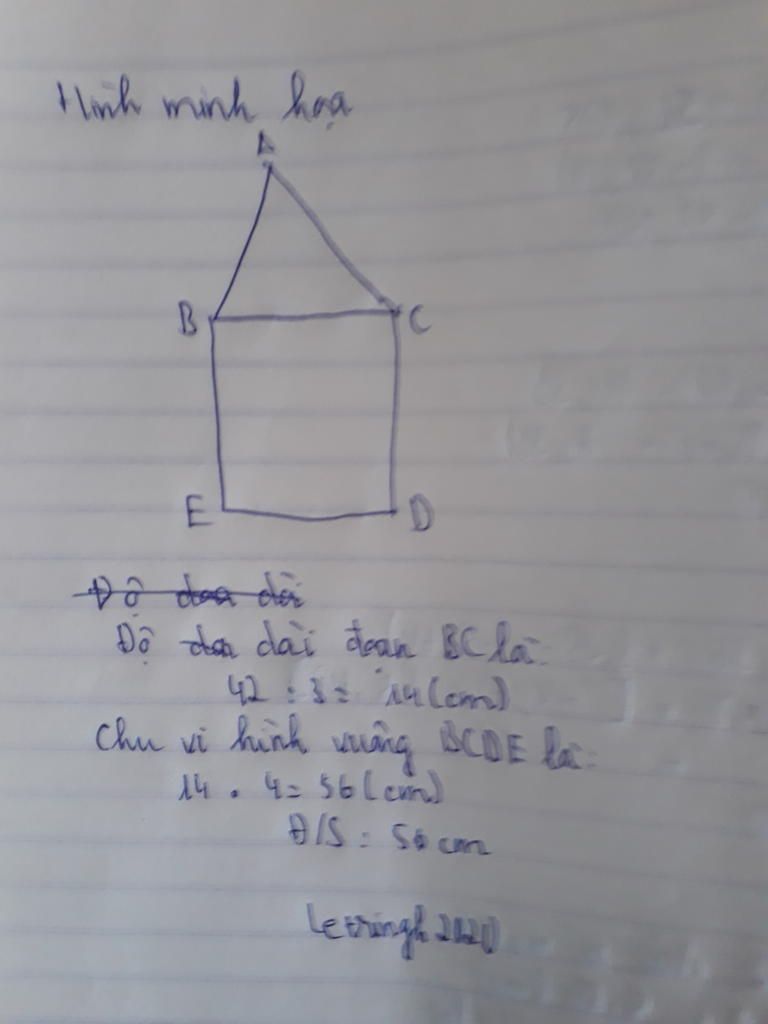 Hình minh hoạ
A
B
C
E
D
Độ doa dài
Độ dan dài đoạn BC là:
42 : 3 = 14 (cm)
Chu vi hình vuông BCDE là:
14 . 4 = 56 (cm)
Đ/S : 56 cm